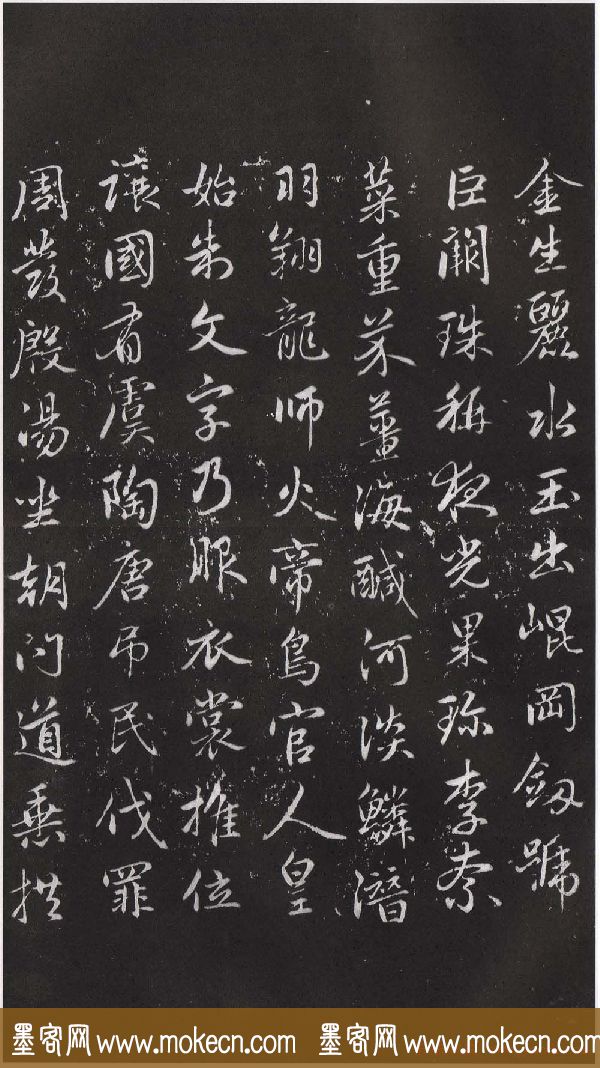 金生麗水玉出崐岡劔號
巨闕珠稱夜光果珎李柰
菜重芥薑海醎河淡鱗潛
羽翔龍師火帝鳥官人皇
始制文字乃服衣裳推位
讓國有虞陶唐吊民伐罪
周發殷湯坐朝問道垂拱
墨客网 www.mokecn.com 墨客网 www.mokecn.com